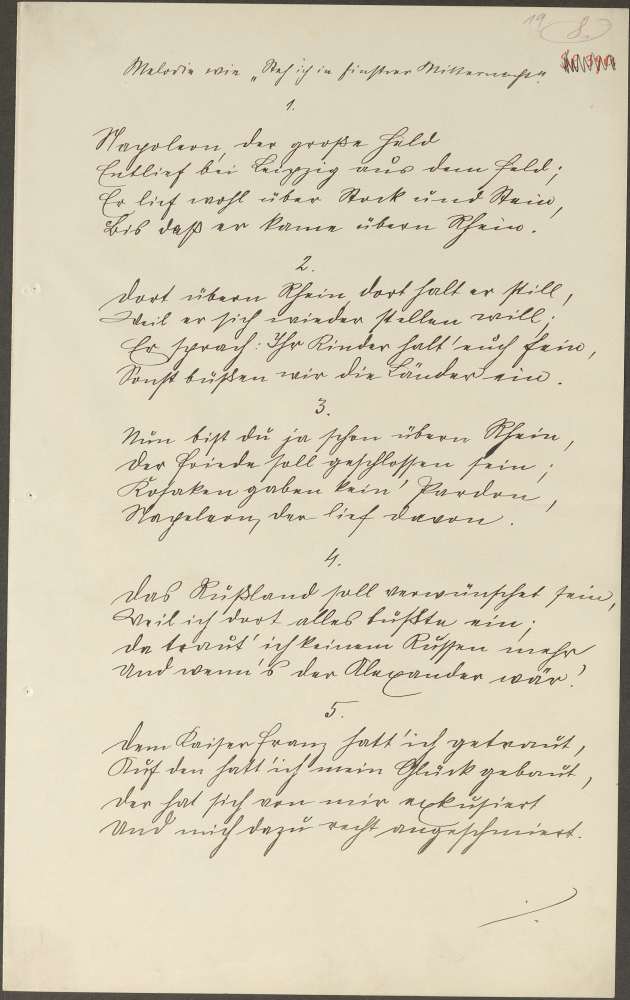 19 8.
Melodie wie „Steh ich in finstrer Mitternacht“.
1.
Napoleon, der große Held
Entlief bei Leipzig aus dem Feld;
Er lief wohl über Stock und Stein,
Bis daß er kame übern Rhein.
2.
Dort übern Rhein, dort halt er still,
Weil er sich wieder stellen will;
Er sprach: Ihr Kinder halt' euch fein,
Sonst büßen wir die Länder ein.
3.
Nun bist du ja schon übern Rhein,
Der Friede soll geschlossen sein;
Kosaken gaben kein' Pardon,
Napoleon, der lief davon.
4.
Das Rußland soll verwünschet sein,
Weil ich dort alles büßte ein;
Da traut' ich keinem Russen mehr
Und wenn's der Alexander wär'.
5.
Dem Kaiser Franz hatt' ich getraut,
Auf den hatt' ich mein Glück gebaut,
Der hat sich von mir exkusiert
Und mich dazu recht angeschmiert.
./.